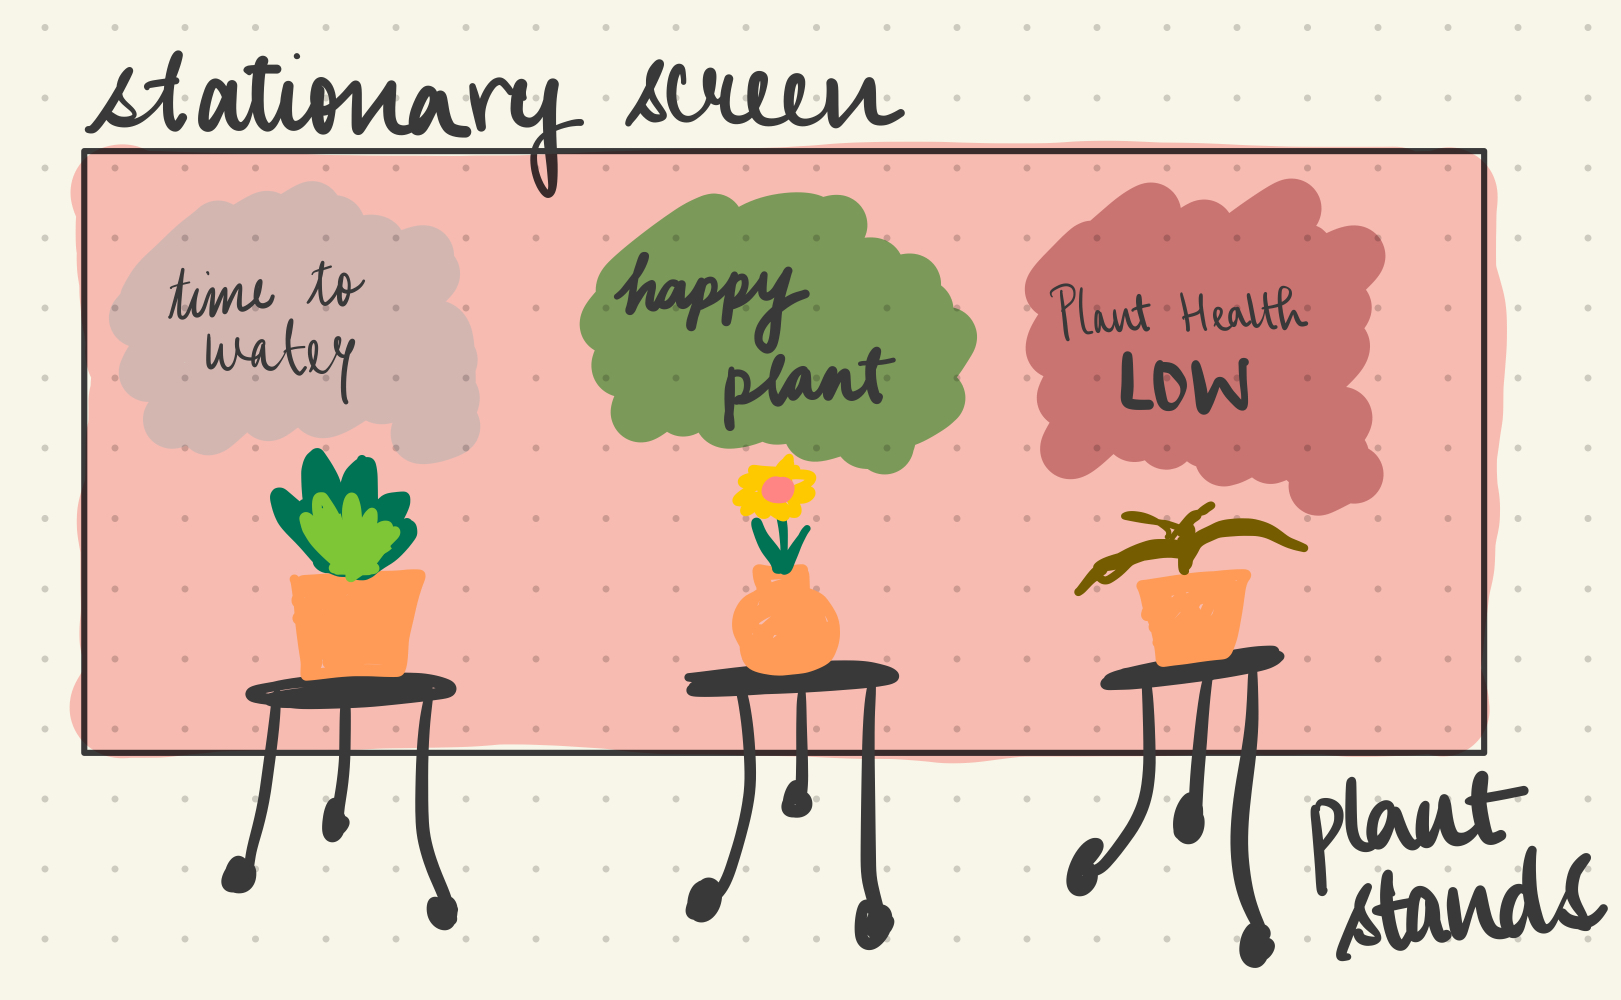 stationary screen
time to
water
happy
plant
Plant Health
LOW
plant
stands